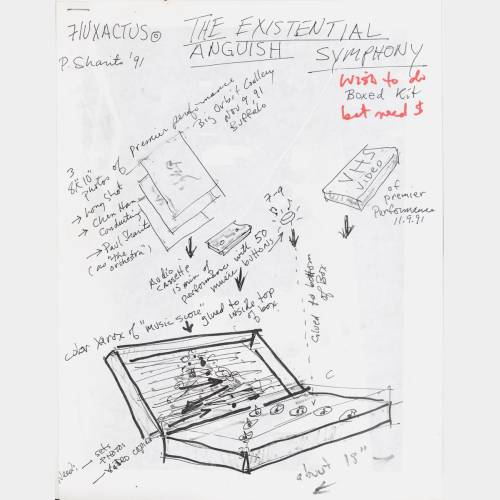 7/UXACTUS©
P. Sharits '91
THE EXISTENTIAL
ANGUISH SYMPHONY
WISH to do
Boxed Kit
but need $
3
8"x10"
photos of premier performance
Big Orbit Gallery
NOV 9 91
BUFFALO
→ Long Shot
conducting
→ Paul Sharits
(as "the
orchestra")
VHS
video
of
premier
Performance
11.9.91
7-9
Audio
cassette
15 min of
Performance with 50
music buttons
Glued to bottom
of Box
color Xerox of "music score" glued to
inside top
of box
C
needs → sets
PHOTOS
→ VIDEO copies
about 18"